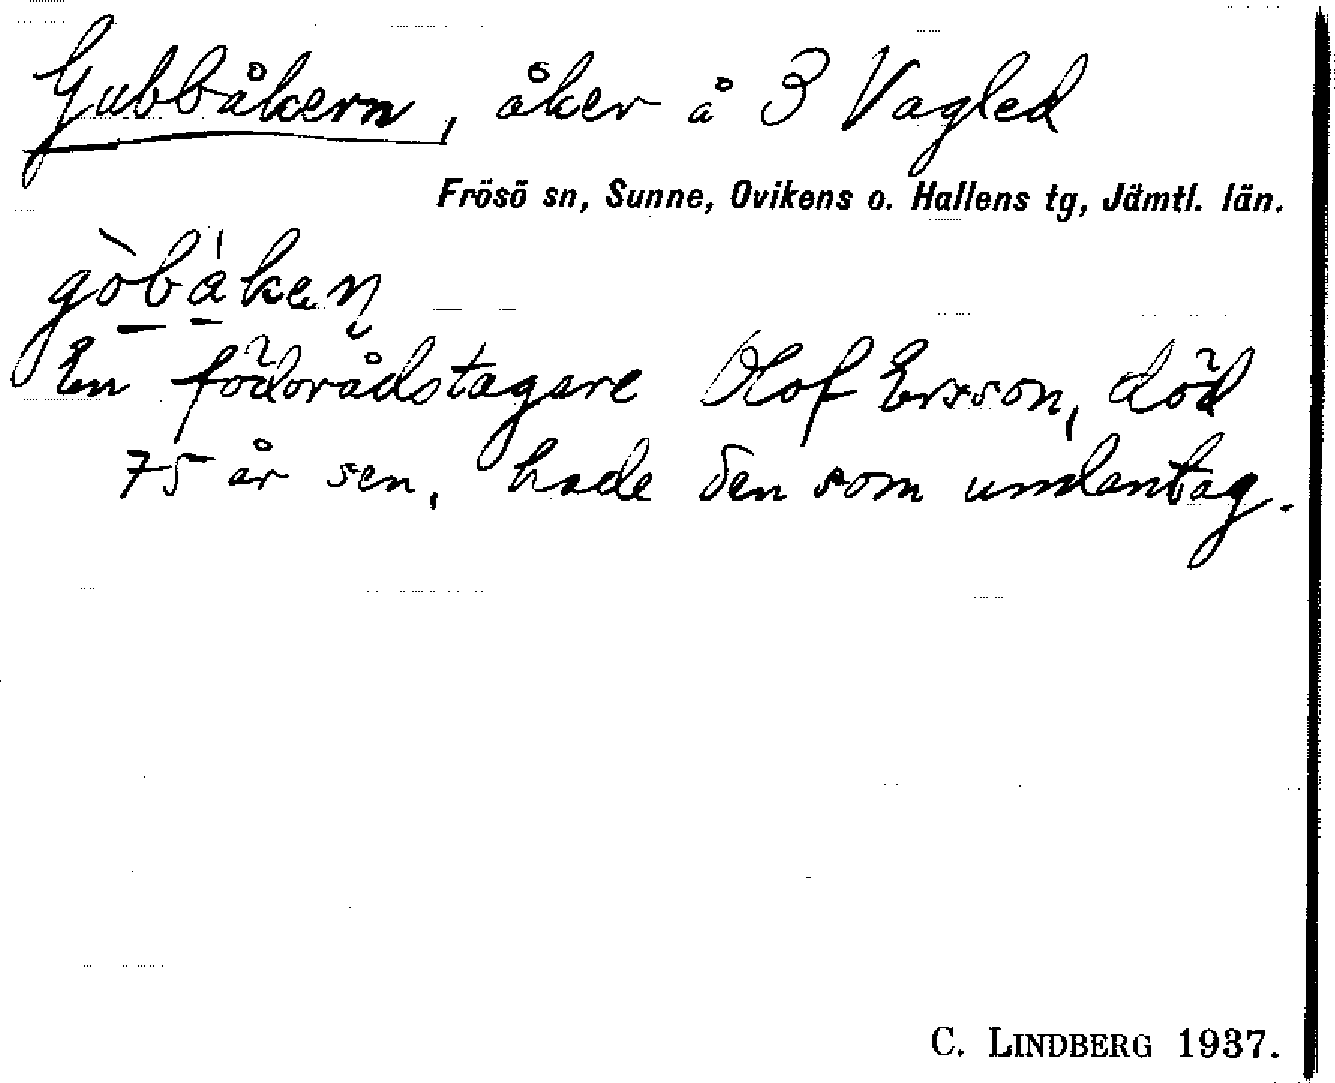 Gubbåkern, åker å 3 Vagled
Frösö sn, Sunne, Ovikens o. Hallens tg, Jämtl. län.
gòbákaṇ
En födorådstagare Olof Ersson, död
75 år sen, hade den som undantag.
C. LINDBERG 1937.